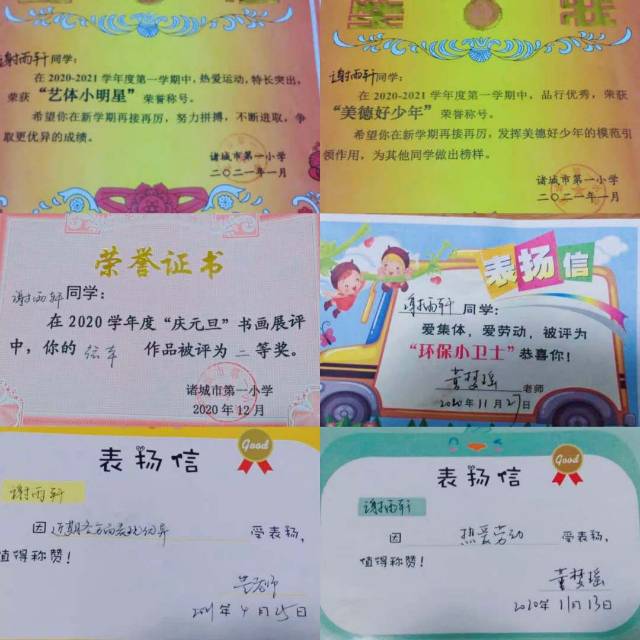 谢雨轩同学：
在2020-2021学年度第一学期中，热爱运动，特长突出，
荣获“艺体小明星”荣誉称号。
希望你在新学期再接再厉，努力拼搏，不断进取，争
取更优异的成绩。
诸城市第一小学
二〇二一年一月
谢雨轩同学：
在2020-2021学年度第一学期中，品行优秀，荣获
“美德好少年”荣誉称号。
希望你在新学期再接再厉，发挥美德好少年的模范引
领作用，为其他同学做出榜样。
诸城市第一小学
二〇二一年一月
荣誉证书
谢雨轩同学：
在2020学年度“庆元旦”书画展评
中，你的 绘本 作品被评为 二 等奖。
诸城市第一小学
2020年12月
表扬信
谢雨轩 同学：
爱集体，爱劳动，被评为
“环保小卫士”恭喜你！
董梦瑶 老师
2020年11月27日
表扬信
Good
谢雨轩
因 近期各方面表现优异 受表扬，
值得称赞！
吴老师
2021年4月25日
表扬信
Good
谢雨轩
因 热爱劳动 受表扬，
值得称赞！
董梦瑶
2020年11月13日